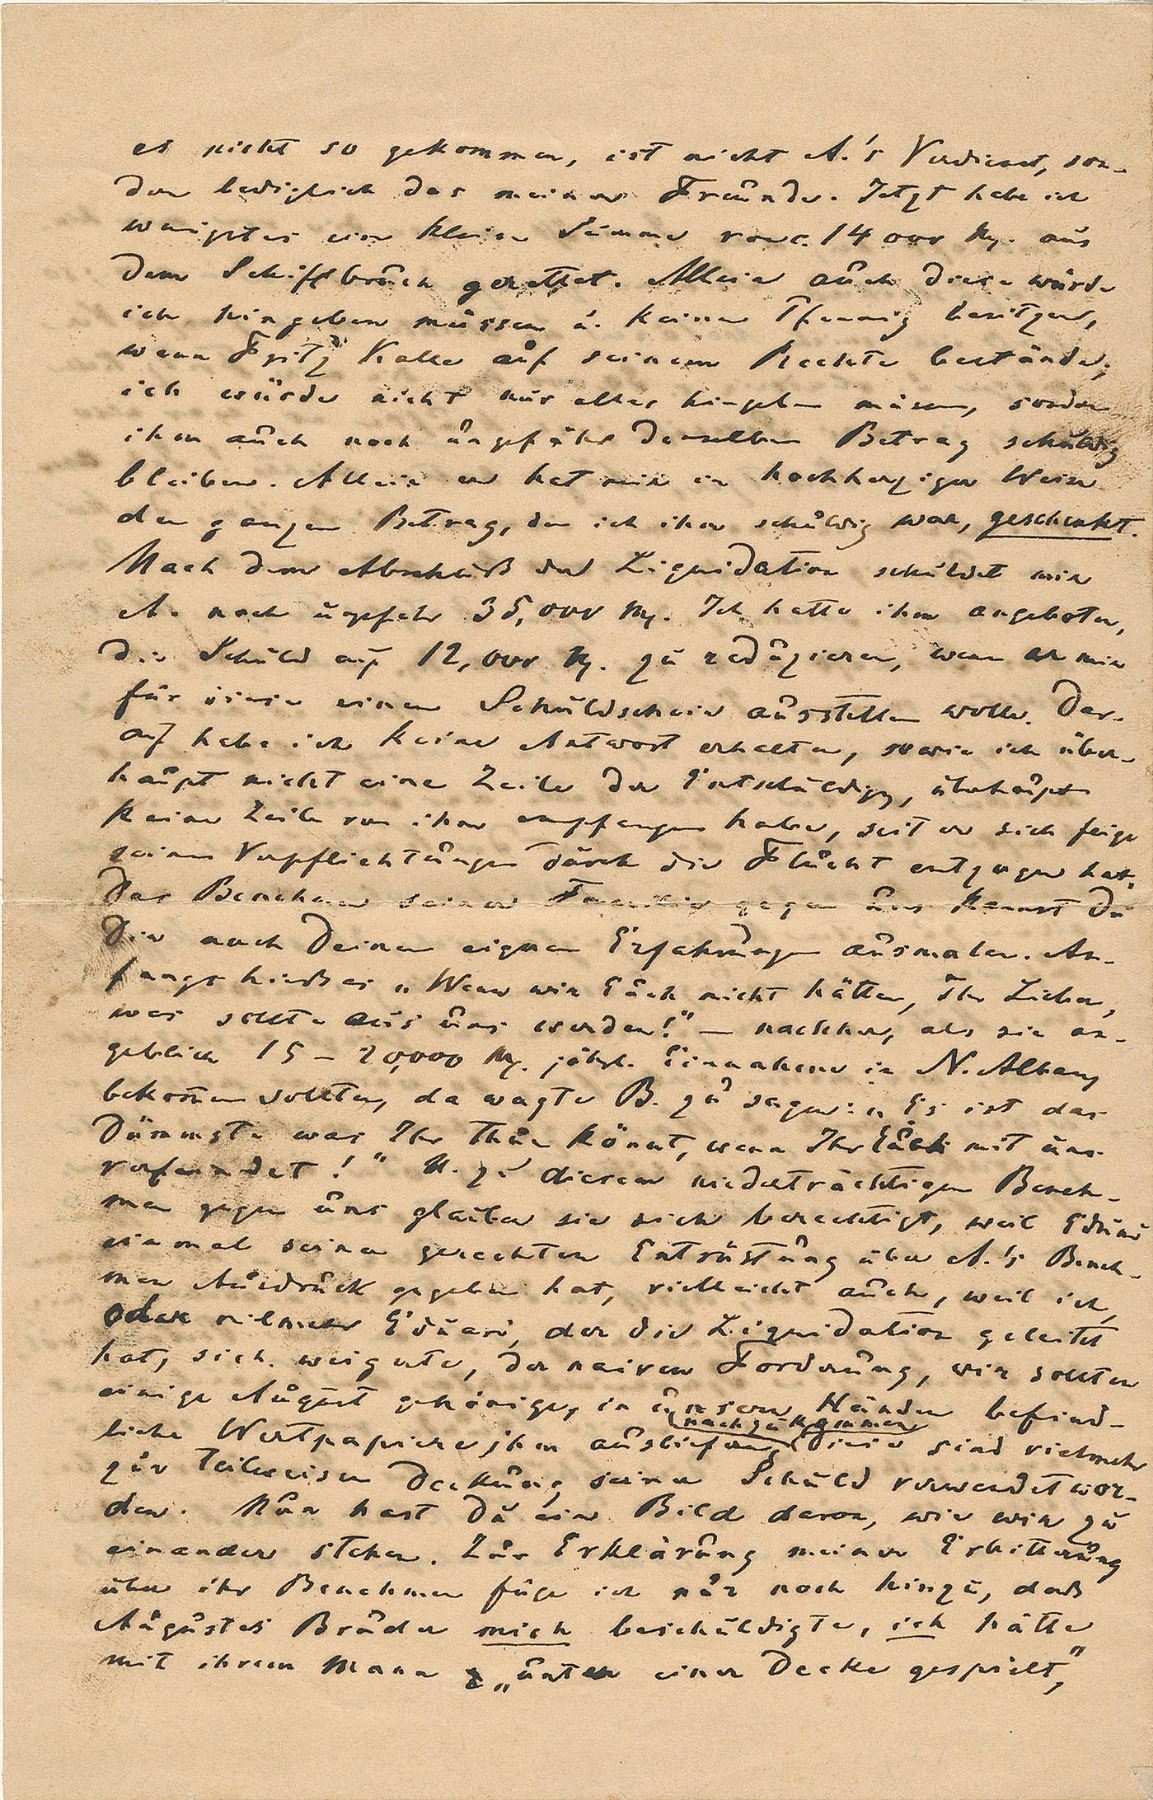 es nicht so gekommen, ist nicht A.'s Verdienst, son-
dern lediglich das meiner Freunde. Jetzt habe ich
wenigstens eine kleine Summe von c. 14 000 M. aus
dem Schiffbruch gerettet. Allein auch diese würde
ich hingeben müssen u. keinen Pfennig besitzen,
wenn Fritz Kalle auf seinem Rechte bestände;
ich würde nicht nur alles hingeben müssen, sondern
ihm auch noch ungefähr denselben Betrag schuldig
bleiben. Allein er hat mir in hochherziger Weise
den ganzen Betrag, den ich ihm schuldig war, geschenkt.
Nach dem Abschluß der Liquidation schuldet mir
A. noch ungefähr 35,000 M. Ich hatte ihm angeboten,
die Schuld auf 12,000 M. zu reduzieren, wenn er mir
für diese einen Schuldschein ausstellen wolle. Dar-
auf habe ich keine Antwort erhalten, sowie ich über-
haupt nicht eine Zeile der Entschuldigg, überhaupt
keine Zeile von ihm empfangen habe, seit er sich feige
seinen Verpflichtungen durch die Flucht entzogen hat.
Das Benehmen seiner Familie gegen uns kannst Du
Dir nach Deinen eignen Erfahrungen ausmalen. An-
fangs hieß es „Wenn wir Euch nicht hätten, Ihr Lieben,
was sollte aus uns werden!" – nachher, als sie an-
geblich 15 – 20,000 M. jährl. Einnahme in N. Albany
bekomen sollten, da wagte B. zu sagen: „Es ist das
Dümmste was Ihr thun könnt, wenn Ihr Euch mit uns
verfeindet!" U. zu diesem niederträchtigen Beneh-
men gegen uns glauben sie sich berechtigt, weil Eduard
einmal seiner gerechten Entrüstung über A.'s Beneh-
men Ausdruck gegeben hat, vielleicht auch, weil ich,
oder vielmehr Eduard, der die Liquidation geleitet
hat, sich weigerte, der naiven Forderung, wir sollten
einige August gehörige, in unseren Händen befind-
liche Wertpapiere ihm ausliefern, nachzukommen diese sind vielmehr
zur teilweisen Deckung seiner Schuld verwendet wor-
den. Nun hast Du ein Bild davon, wie wir zu
einander stehen. Zur Erklärung meiner Erbitterung
über ihr Benehmen füge ich nur noch hinzu, daß
Augustes Bruder mich beschuldigte, ich hätte
mit ihrem Mann „unter einer Decke gespielt,"